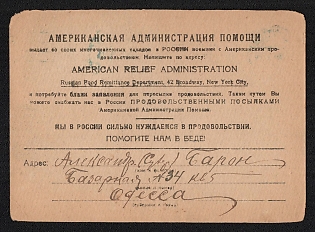 АМЕРИКАНСКАЯ АДМИНИСТРАЦИЯ ПОМОЩИ
выдает из своих многочисленных складов в РОССИИ посылки с Американским
продовольствием. Напишите по адресу:
AMERICAN RELIEF ADMINISTRATION
Russian Food Remittance Department, 42 Broadway, New York City,
и потребуйте бланк заявления для пересылки продовольствия. Таким путем Вы
можете снабжать нас в России ПРОДОВОЛЬСТВЕННЫМИ ПОСЫЛКАМИ
Американской Администрации Помощи.
МЫ В РОССИИ СИЛЬНО НУЖДАЕМСЯ В ПРОДОВОЛЬСТВИИ.
ПОМОГИТЕ НАМ В БЕДЕ!
Адрес: Александр Барон
Базарная № 34 кв 5
Одесса